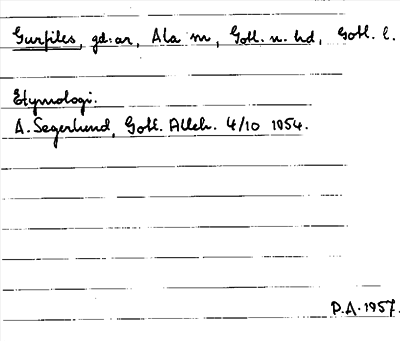 Gurfiles, gd:ar, Ala sn, Gotl. n. hd, Gotl. l.
Etymologi.
A. Segerlund, Gotl. Alleh. 4/10 1954.
P.A. 1957.